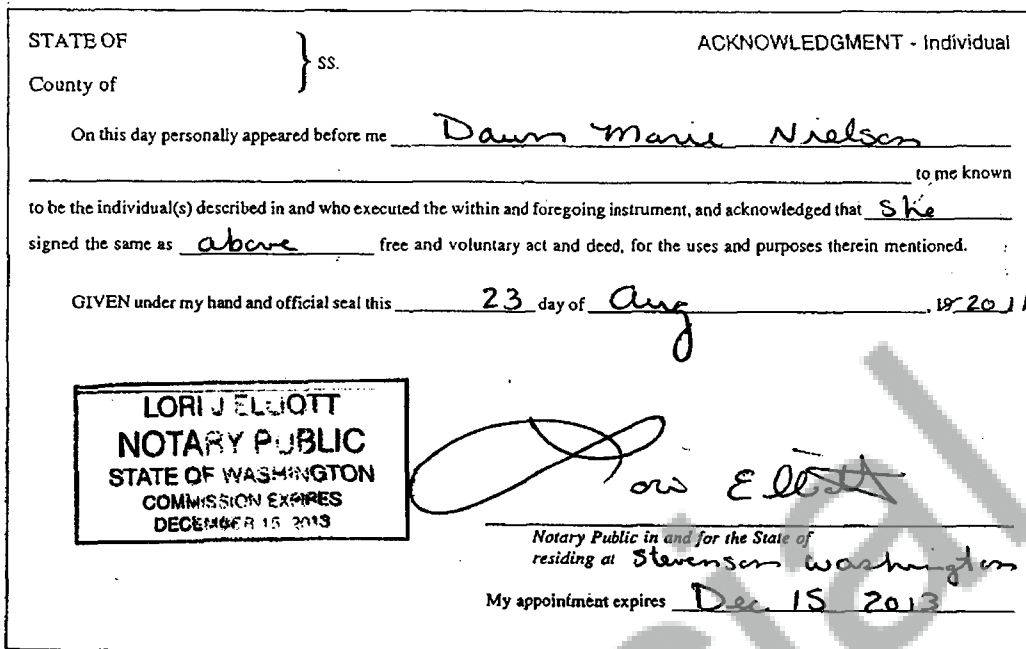 STATE OF
ACKNOWLEDGMENT - Individual
ss.
County of
On this day personally appeared before me Dawn Marie Nielson
to me known
to be the individual(s) described in and who executed the within and foregoing instrument, and acknowledged that She
signed the same as above free and voluntary act and deed, for the uses and purposes therein mentioned.
GIVEN under my hand and official seal this 23 day of Aug , 19 2011
LORI J ELLIOTT
NOTARY PUBLIC
STATE OF WASHINGTON
COMMISSION EXPIRES
DECEMBER 15 2013
Lori Elliott
Notary Public in and for the State of
residing at Stevenson Washington
My appointment expires Dec. 15 2013